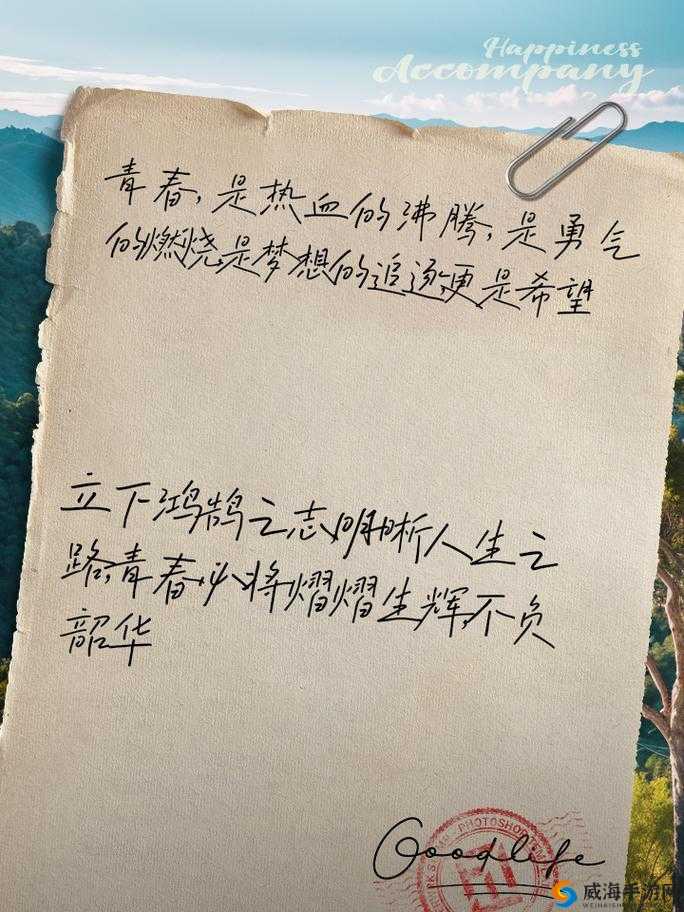 Happiness
Accompany
青春,是热血的沸腾,是勇气
的燃烧,是梦想的追逐,更是希望
立下鸿鹄之志,明晰人生之
路,青春必将熠熠生辉,不负
韶华
PHOTOSHOP
Goodlife
威海手游网